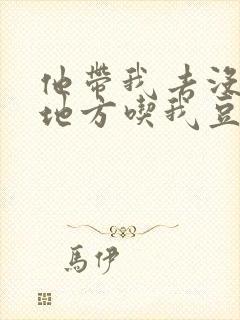 他帶我去没
地方喫我豆
馬伊